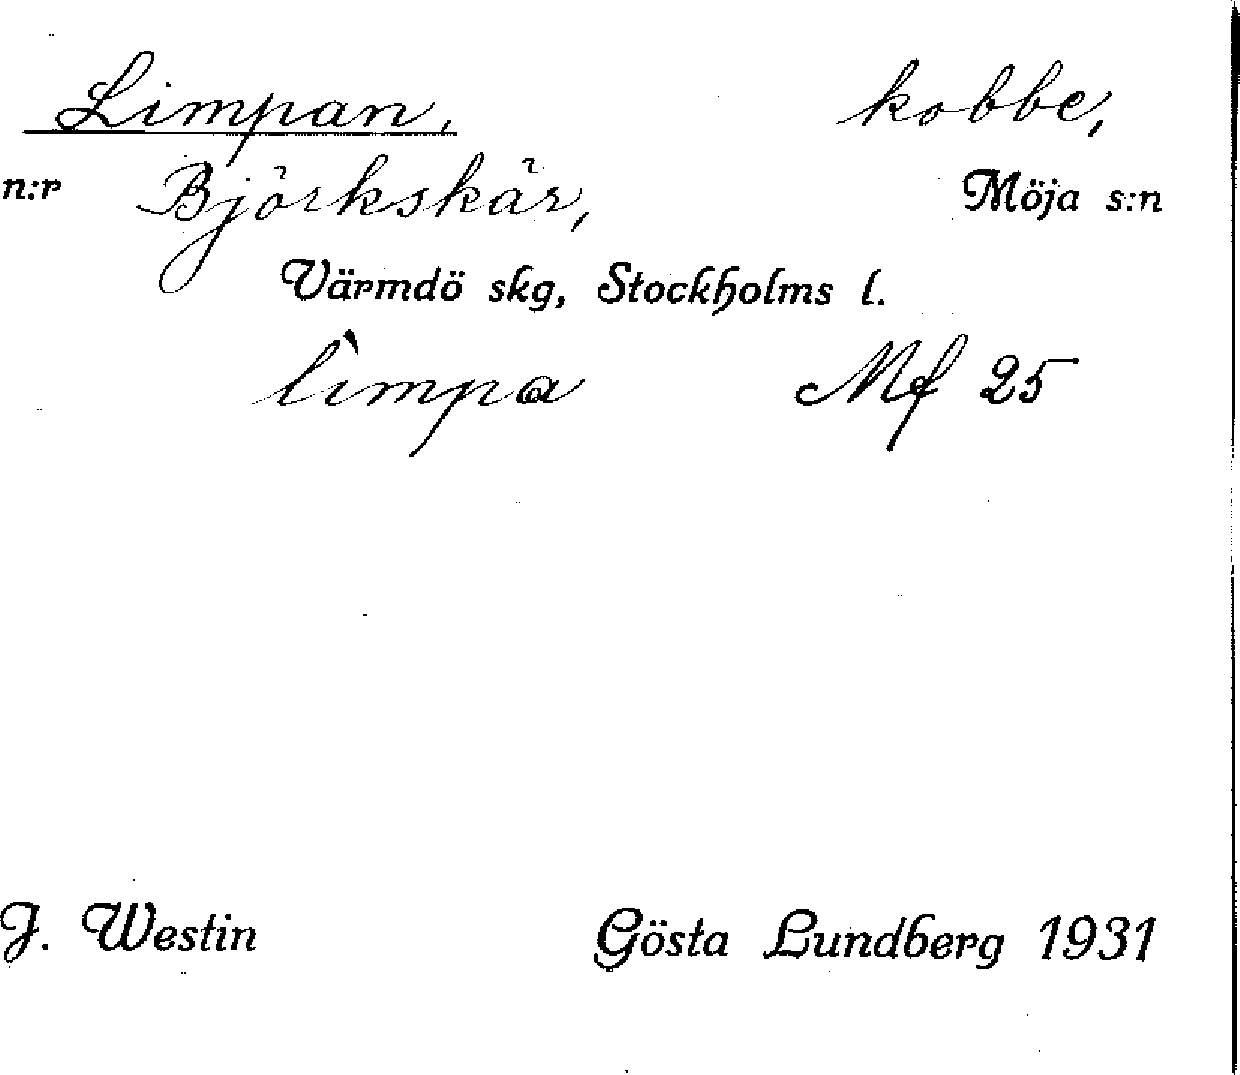 Limpan, kobbe,
n:r Björkskär, Möja s:n
Värmdö skg, Stockholms l.
lìmpa Mf 25
J. Westin Gösta Lundberg 1931